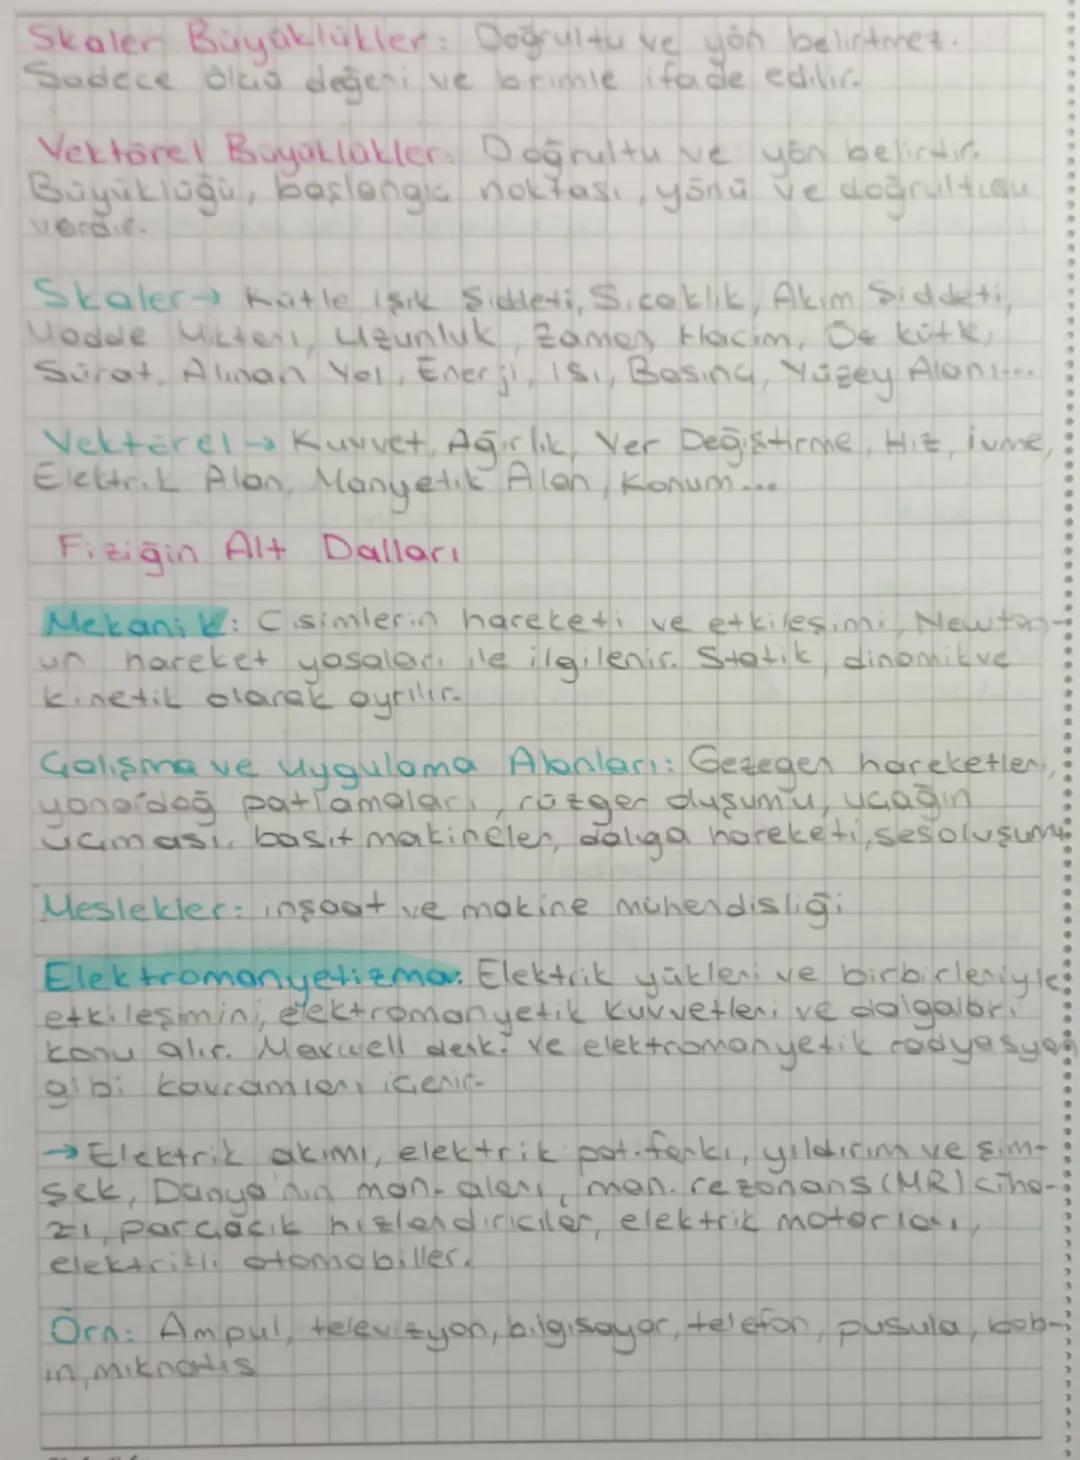 Skaler Büyüklükler: Doğrultu ve yön belirtmez.
Sadece ölçü değeri ve birimle ifade edilir.
Vektörel Büyüklükler: Doğrultu ve yön belirtir.
Büyüklüğü, başlangıç noktası, yönü ve doğrultusu
vardır.
Skaler → Kütle, Işık Şiddeti, Sıcaklık, Akım Şiddeti,
Madde Miktarı, Uzunluk, Zaman, Hacim, Öz kütle,
Sürat, Alınan Yol, Enerji, Isı, Basınç, Yüzey Alanı...
Vektörel → Kuvvet, Ağırlık, Yer Değiştirme, Hız, ivme,
Elektrik Alan, Manyetik Alan, Konum...
Fiziğin Alt Dalları
Mekanik: Cisimlerin hareketi ve etkileşimi, Newton-
un hareket yasaları ile ilgilenir. Statik, dinamik ve
kinetik olarak ayrılır.
Çalışma ve Uygulama Alanları: Gezegen hareketleri,
yanardağ patlamaları, rüzgar oluşumu, uçağın
uçması, basit makineler, dalga hareketi, ses oluşumu
Meslekler: inşaat ve makine mühendisliği
Elektromanyetizma: Elektrik yükleri ve birbirleriyle
etkileşimini, elektromanyetik kuvvetleri ve dalgaları
konu alır. Maxwell denk. ve elektromanyetik radyasyon
gibi kavramları içerir.
→ Elektrik akımı, elektrik pot. farkı, yıldırım ve şim-
şek, Dünya'nın man. alanı, man. rezonans (MR) ciha-
zı, parçacık hızlandırıcılar, elektrik motorları,
elektrikli otomobiller.
Örn: Ampul, televizyon, bilgisayar, telefon, pusula, bob-
in, mıknatıs